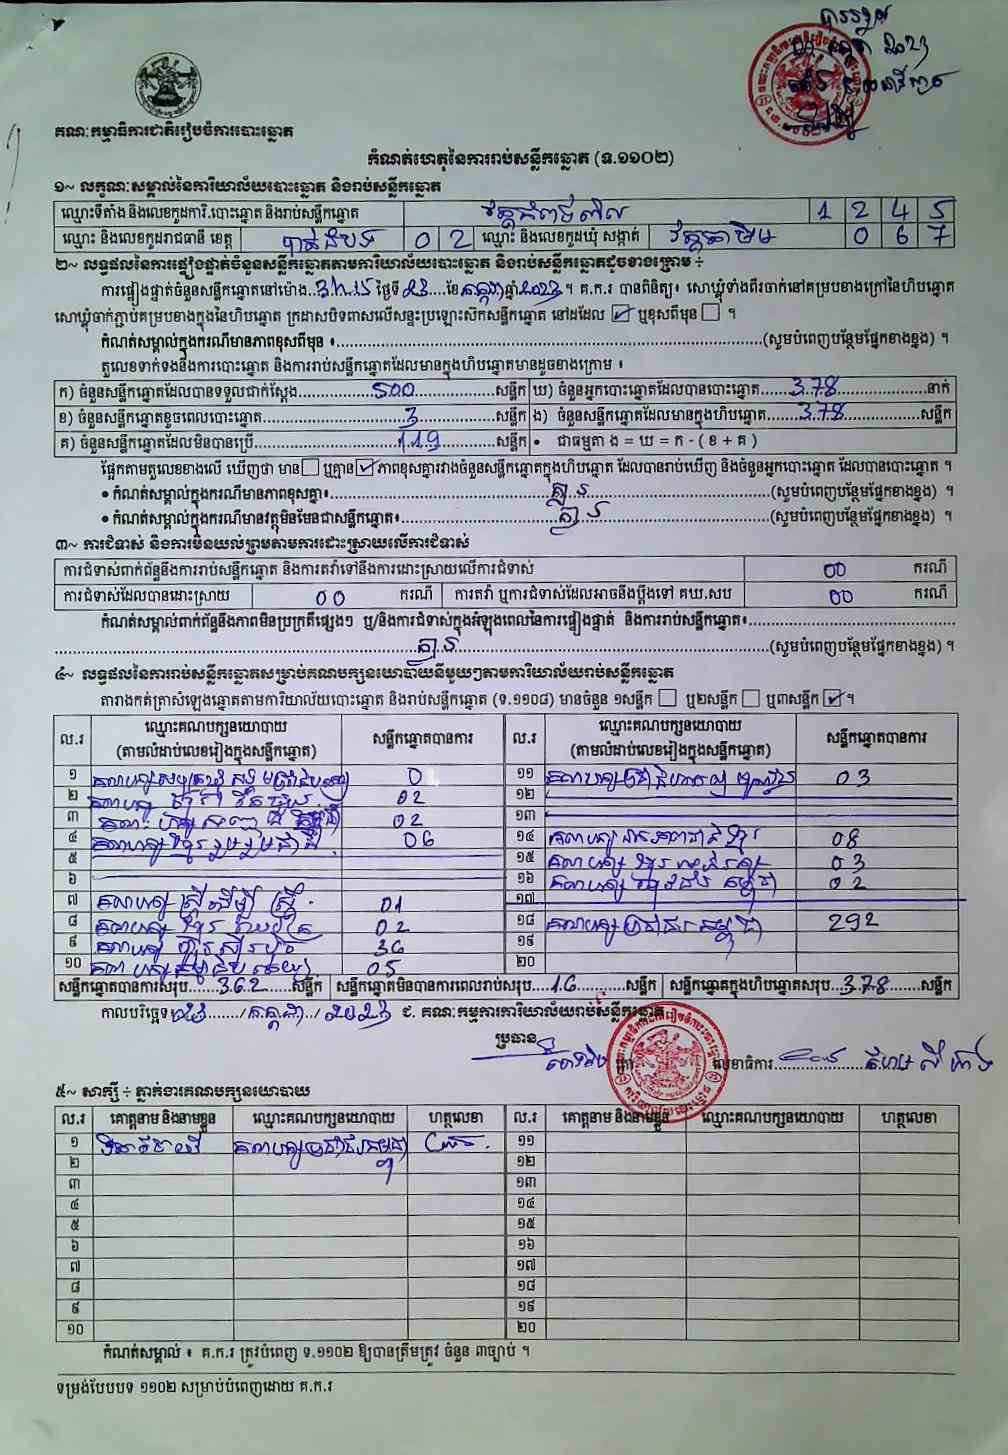 គណៈកម្មាធិការជាតិរៀបចំការបោះឆ្នោត
កំណត់ហេតុនៃការរាប់សន្លឹកឆ្នោត (ទ.១១០២)
១~ លក្ខណៈសម្គាល់នៃការិយាល័យបោះឆ្នោត និងរាប់សន្លឹកឆ្នោត
ឈ្មោះទីតាំង និងលេខកូដការិ.បោះឆ្នោត និងរាប់សន្លឹកឆ្នោត 1 2 4 5
ឈ្មោះ និងលេខកូដរាជធានី ខេត្ត បាត់ដំបង 0 2 ឈ្មោះ និងលេខកូដឃុំ សង្កាត់ វត្តតាមិម 0 6 7
២~ លទ្ធផលនៃការផ្ទៀងផ្ទាត់ចំនួនសន្លឹកឆ្នោតតាមការិយាល័យបោះឆ្នោត និងរាប់សន្លឹកឆ្នោតដូចខាងក្រោម ÷
ការផ្ទៀងផ្ទាត់ចំនួនសន្លឹកឆ្នោតនៅម៉ោង 3h15 ថ្ងៃទី 23 ខែ កក្កដា ឆ្នាំ 2023 ។ គ.ក.រ បានពិនិត្យ៖ សោឃ្លុំទាំងពីរចាក់នៅគម្របខាងក្រៅនៃហិបឆ្នោត
សោឃ្លុំចាក់ភ្ជាប់គម្របខាងក្នុងនៃហិបឆ្នោត ក្រដាសបិទពាសលើសន្ទះប្រឡោះសឹកសន្លឹកឆ្នោត នៅដដែល ☑ ឬខុសពីមុន ☐ ។
កំណត់សម្គាល់ក្នុងករណីមានភាពខុសពីមុន ៖ (សូមបំពេញបន្ថែមផ្នែកខាងខ្នង) ។
តួលេខទាក់ទងនឹងការបោះឆ្នោត និងការរាប់សន្លឹកឆ្នោតដែលមានក្នុងហិបឆ្នោតមានដូចខាងក្រោម ៖
ក) ចំនួនសន្លឹកឆ្នោតដែលបានទទួលជាក់ស្ដែង 500 សន្លឹក ឃ) ចំនួនអ្នកបោះឆ្នោតដែលបានបោះឆ្នោត 378 នាក់
ខ) ចំនួនសន្លឹកឆ្នោតខូចពេលបោះឆ្នោត 3 សន្លឹក ង) ចំនួនសន្លឹកឆ្នោតដែលមានក្នុងហិបឆ្នោត 378 សន្លឹក
គ) ចំនួនសន្លឹកឆ្នោតដែលមិនបានប្រើ 119 សន្លឹក • ជាធម្មតា ង = ឃ = ក - ( ខ + គ )
ផ្អែកតាមតួលេខខាងលើ ឃើញថា មាន ☐ ឬគ្មាន ☑ ភាពខុសគ្នារវាងចំនួនសន្លឹកឆ្នោតក្នុងហិបឆ្នោត ដែលបានរាប់ឃើញ និងចំនួនអ្នកបោះឆ្នោត ដែលបានបោះឆ្នោត ។
• កំណត់សម្គាល់ក្នុងករណីមានភាពខុសគ្នា៖ គ្មាន (សូមបំពេញបន្ថែមផ្នែកខាងខ្នង) ។
• កំណត់សម្គាល់ក្នុងករណីមានវត្ថុមិនមែនជាសន្លឹកឆ្នោត៖ គ្មាន (សូមបំពេញបន្ថែមផ្នែកខាងខ្នង) ។
៣~ ការជំទាស់ និងការមិនយល់ព្រមតាមការដោះស្រាយលើការជំទាស់
ការជំទាស់ពាក់ព័ន្ធនឹងការរាប់សន្លឹកឆ្នោត និងការតវ៉ាទៅនឹងការដោះស្រាយលើការជំទាស់ 00 ករណី
ការជំទាស់ដែលបានដោះស្រាយ 00 ករណី ការតវ៉ា ឬការជំទាស់ដែលអាចនឹងប្ដឹងទៅ គឃ.សប 00 ករណី
កំណត់សម្គាល់ពាក់ព័ន្ធនឹងភាពមិនប្រក្រតីផ្សេងៗ ឬ/និងការជំទាស់ក្នុងអំឡុងពេលនៃការផ្ទៀងផ្ទាត់ និងការរាប់សន្លឹកឆ្នោត៖
គ្មាន (សូមបំពេញបន្ថែមផ្នែកខាងខ្នង) ។
៤~ លទ្ធផលនៃការរាប់សន្លឹកឆ្នោតសម្រាប់គណបក្សនយោបាយនីមួយៗតាមការិយាល័យរាប់សន្លឹកឆ្នោត
តារាងកត់ត្រាសំឡេងឆ្នោតតាមការិយាល័យបោះឆ្នោត និងរាប់សន្លឹកឆ្នោត (ទ.១១០៨) មានចំនួន ១សន្លឹក ☐ ឬ២សន្លឹក ☐ ឬ៣សន្លឹក ☑ ។
ល.រ ឈ្មោះគណបក្សនយោបាយ (តាមលំដាប់លេខរៀងក្នុងសន្លឹកឆ្នោត) សន្លឹកឆ្នោតបានការ ល.រ ឈ្មោះគណបក្សនយោបាយ (តាមលំដាប់លេខរៀងក្នុងសន្លឹកឆ្នោត) សន្លឹកឆ្នោតបានការ
១ 0 ១១ 03
២ 02 ១២
៣ 02 ១៣
៤ គណបក្សខ្មែររួបរួមជាតិ 06 ១៤ 08
៥ ១៥ 03
៦ ១៦ 02
៧ គណបក្សស្ត្រីដើម្បីស្ត្រី 01 ១៧
៨ 02 ១៨ គណបក្សប្រជាជនកម្ពុជា 292
៩ 36 ១៩
១០ 05 ២០
សន្លឹកឆ្នោតបានការសរុប 362 សន្លឹក សន្លឹកឆ្នោតមិនបានការពេលរាប់សរុប 16 សន្លឹក សន្លឹកឆ្នោតក្នុងហិបឆ្នោតសរុប 378 សន្លឹក
កាលបរិច្ឆេទ 23 / កក្កដា / 2023 ជ. គណៈកម្មការការិយាល័យរាប់សន្លឹកឆ្នោត
ប្រធាន
លេខាធិការ
៥~ សាក្សី ÷ ភ្នាក់ងារគណបក្សនយោបាយ
ល.រ គោត្តនាម និងនាមខ្លួន ឈ្មោះគណបក្សនយោបាយ ហត្ថលេខា ល.រ គោត្តនាម និងនាមខ្លួន ឈ្មោះគណបក្សនយោបាយ ហត្ថលេខា
១ គណបក្សប្រជាជនកម្ពុជា ១១
២ ១២
៣ ១៣
៤ ១៤
៥ ១៥
៦ ១៦
៧ ១៧
៨ ១៨
៩ ១៩
១០ ២០
កំណត់សម្គាល់ ៖ គ.ក.រ ត្រូវបំពេញ ទ.១១០២ ឱ្យបានត្រឹមត្រូវ ចំនួន ៣ច្បាប់ ។
ទម្រង់បែបបទ ១១០២ សម្រាប់បំពេញដោយ គ.ក.រ